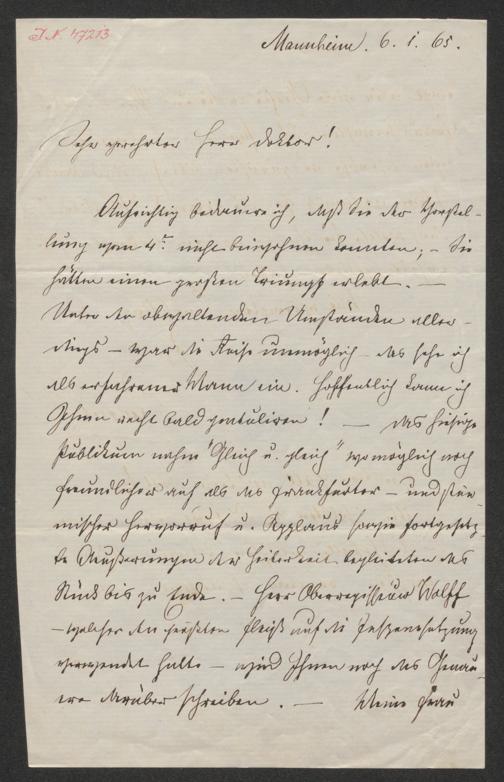 I.N. 47213
Mannheim. 6. 1. 65.
Sehr verehrter Herr Doktor!
Aufrichtig bedauere ich, daß Sie der Vorstel-
lung vom 4t. nicht beiwohnen konnten; – Sie
hätten einen großen Triumph erlebt. —
Unter den obwaltenden Umständen aller-
dings – war die Reise unmöglich – das sehe ich
als erfahrener Mann ein. Hoffentlich kann ich
Ihnen recht bald gratuliren! — Das hiesige
Publikum nahm "Gleich u. gleich" womöglich noch
freundlicher auf als das Frankfurter – und stür-
mischer Hervorruf u. Applaus sowie fortgesetz-
te Äußerungen der Heiterkeit begleiteten das
Stück bis zu Ende. – Herr Oberregisseur Wolff
– welcher den größten Fleiß auf die Inszenesetzung
verwendet hatte – wird Ihnen noch das Genau-
ere darüber schreiben. — Meine Frau